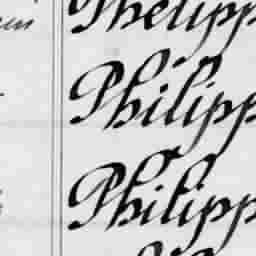 Philipp
Philipp
Philipp